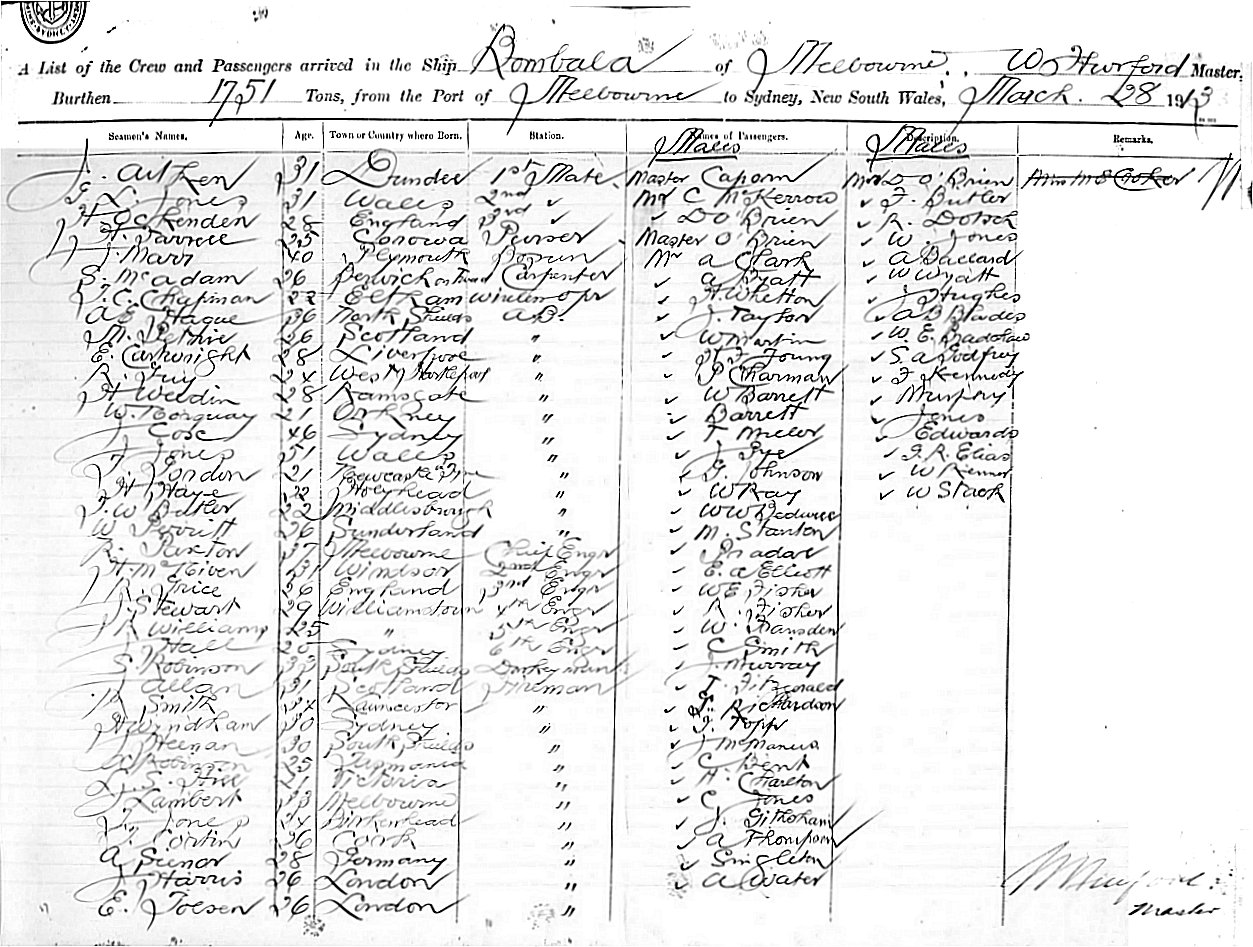 A List of the Crew and Passengers arrived in the Ship Bombala of Melbourne, W Hurford Master,
Burthen 1751 Tons, from the Port of Melbourne to Sydney, New South Wales, March 28 1913
Seamen's Names. Age. Town or Country where Born. Station. Names of Passengers. Description. Remarks.
Males Males
J. Aitken 31 Dundee 1st Mate Master Caporn Mr D O'Brien
L. Jones 31 Wales 2nd " Mr C McKerrow " F. Butler
H Ockenden 28 England 3rd " " D O'Brien " R. Dotsch
H. Jarrett 25 Corowa Purser Master O'Brien " W. Jones
J. Marr 40 Plymouth Bosun Mr A Clark " A Ballard
S. McAdam 26 Berwick on Tweed Carpenter " A Pyatt " W Wyatt
J. C. Chapman 22 Eltham Wireless Opr " H. Whetton " J Hughes
A E Hague 36 North Shields A.B. " J. Taylor " A B Blades
M. Petrie 26 Scotland " " W Martin " W. E. Bradshaw
E. Cartwright 28 Liverpool " " Young " S A Godfrey
R. Guy 24 West Hartlepool " " P Charman " F. Kennedy
H Weedin 28 Ramsgate " " W Barrett " Murphy
W. Torquay 21 Orkney " " Barrett " Jones
J Cose 46 Sydney " " T Miller " Edwards
J Jones 51 Wales " " J Pye " J. R. Elias
J. London 21 Newcastle Tyne " " G. Johnson " W
H Haye 22 Holyhead " " W Ray " W Stack
J. W Butler 22 Middlesbrough " " W W
W Perritt 26 Sunderland " " M. Stanton
R. Paxton 37 Melbourne Chief Engr "
H. McNiven 31 Windsor 2nd Engr " E. A Elliott
R. Price 26 England 3rd Engr " W E Fisher
J. Stewart 29 Williamstown 4th Engr " R. Fisher
R Williams 25 " 5th Engr " W. Ransden
J Hall 20 Sydney 6th Engr " C Smith
S. Robinson 33 South Shields Donkeyman " J. Murray
Allan 31 Scotland Fireman " T. Fitzgerald
R Smith 32 Launceston " " Richardson
H Wyndham 30 Sydney " " J. Topp
J Heenan 30 South Shields " " J McManus
Robinson 25 Tasmania " " C Kent
J. S. Hill 21 Victoria " " H. Charlton
J. Lambert 33 Melbourne " " C Jones
J. Jones 24 Birkenhead " " J.
J. Cortin 26 Cork " " A Thompson
A Sienor 28 Germany " " Singleton
J Harris 26 London " " A Water
E. Joesen 26 London "
Master